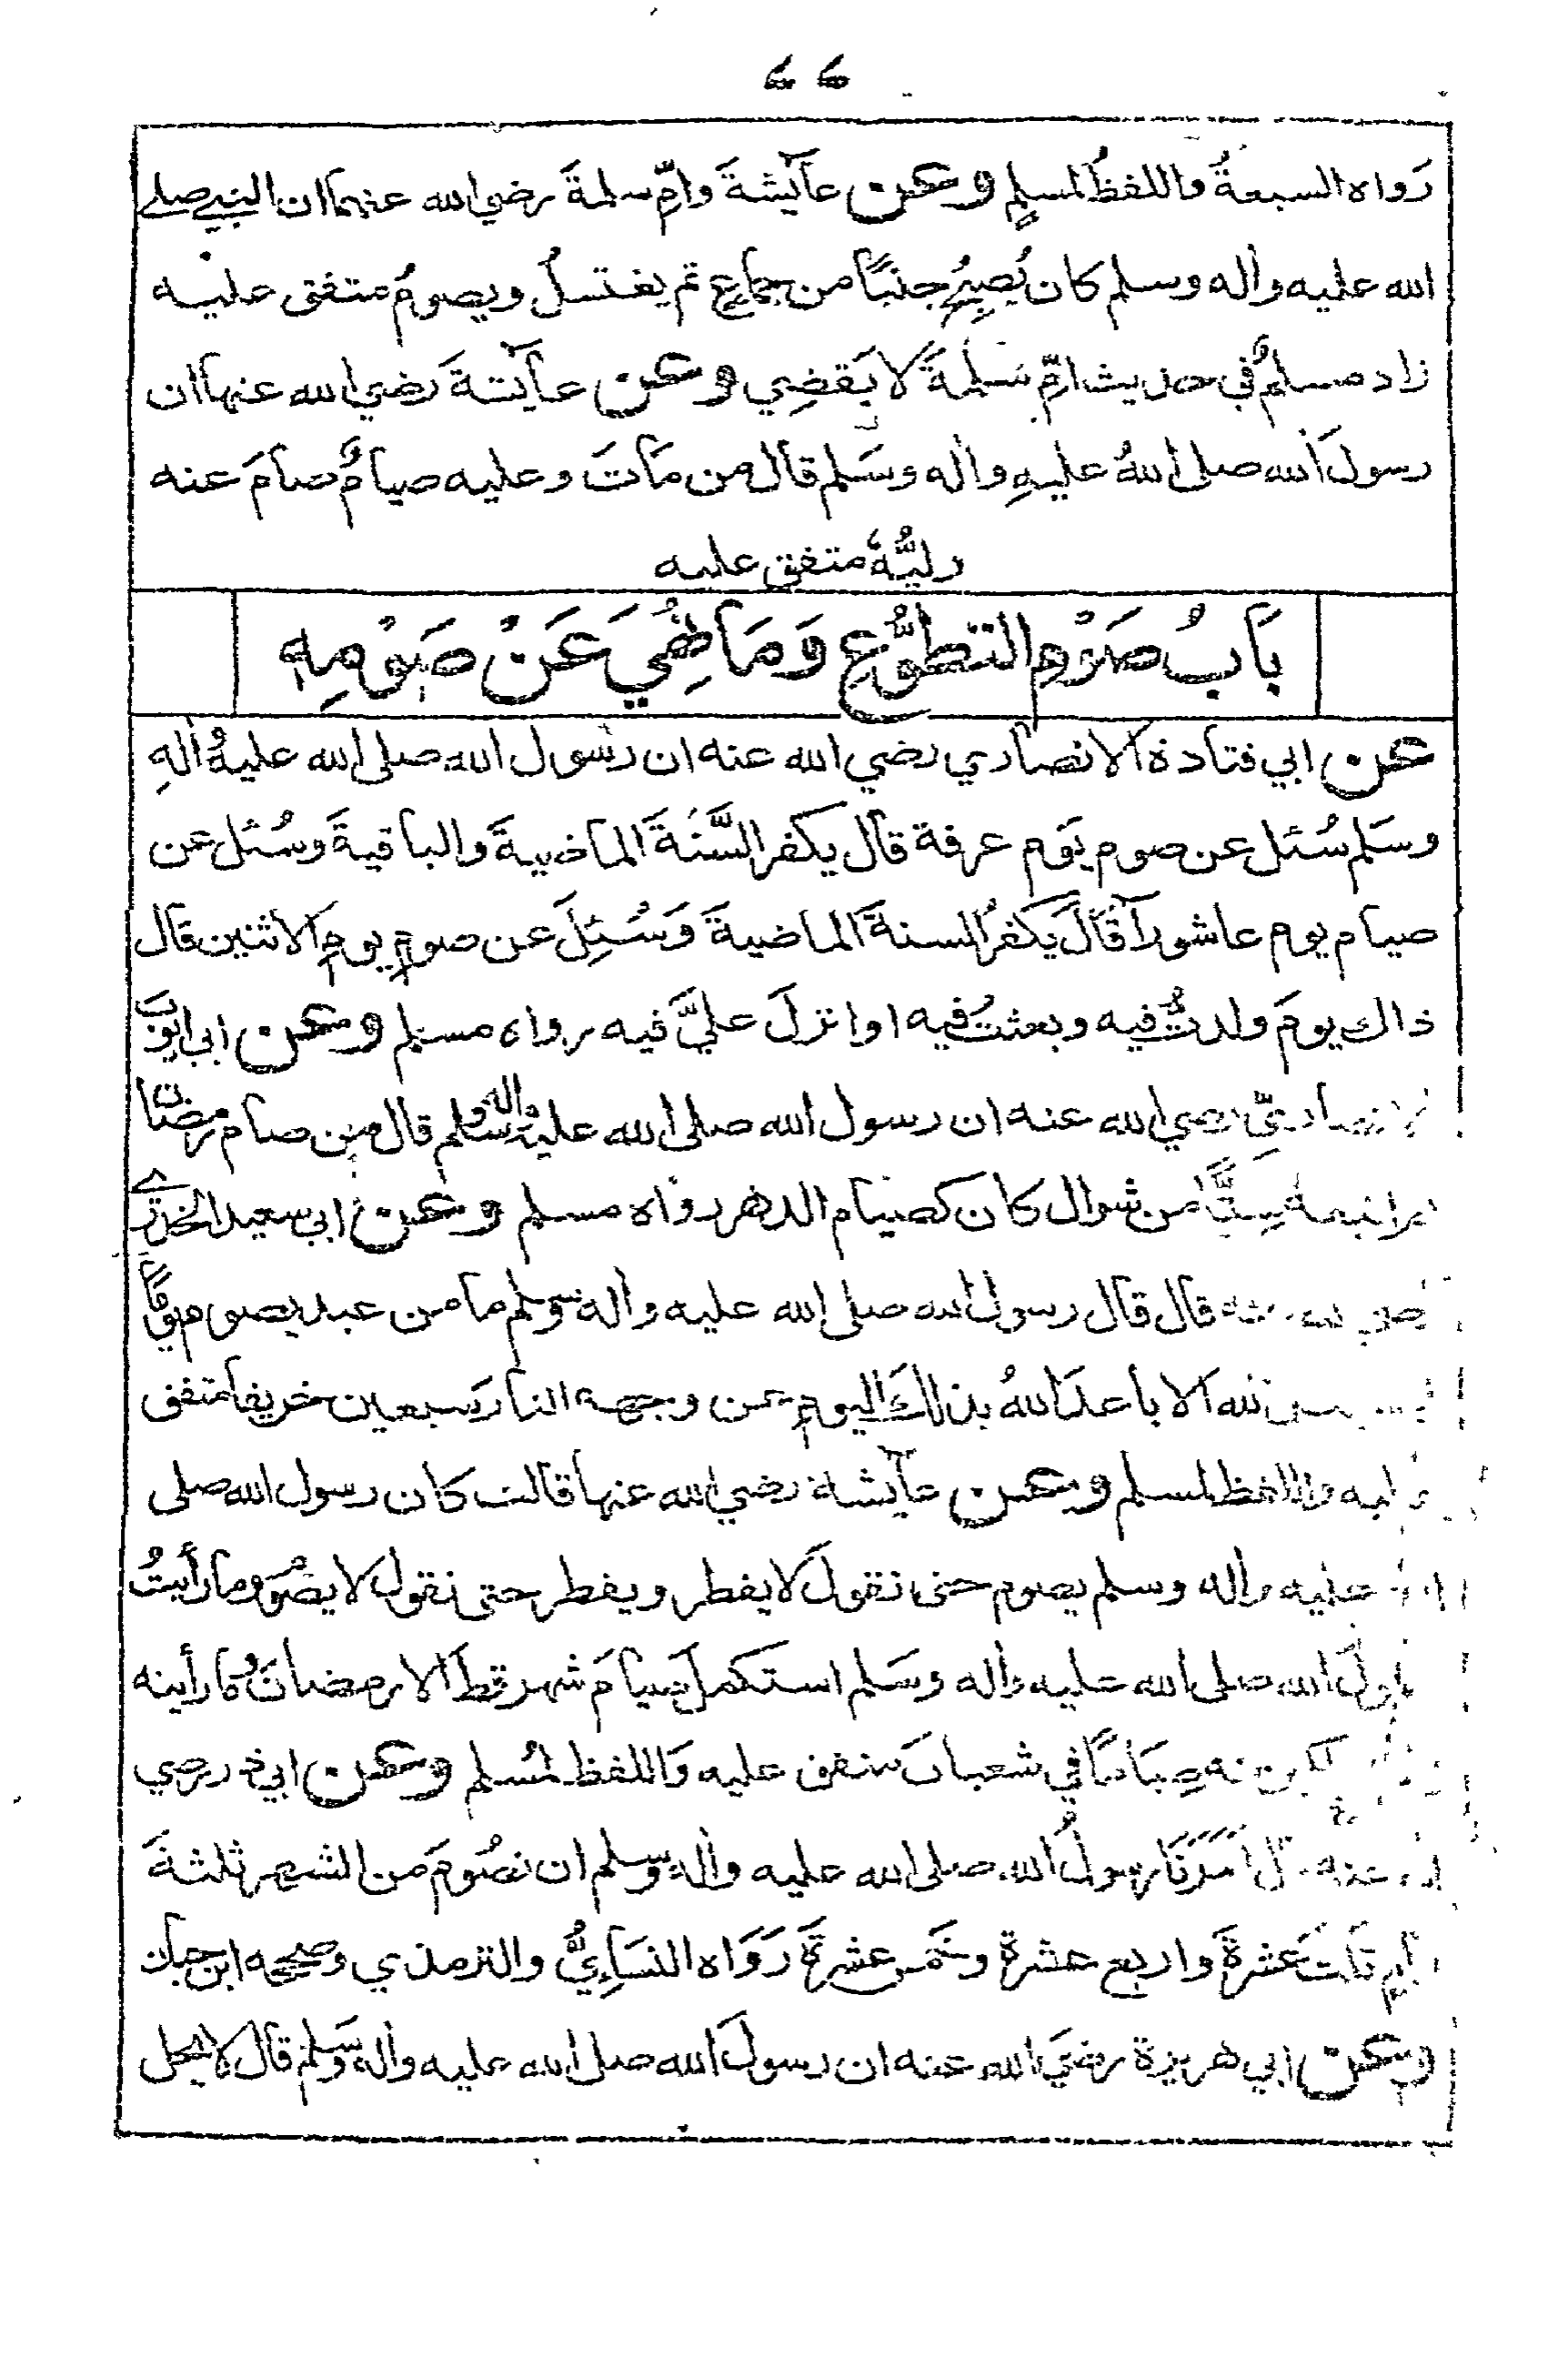 ۷۷
رَواه السبعةُ واللفظُ لمسلمٍ وعن عآيشةَ وامِّ سلمةَ رضي الله عنهما ان النبي صلى
الله عليه واٰله وسلم كان يُصبِحُ جنبًا من جماعٍ ثم يغتسلُ ويصومُ متفق عليه
زاد مسلمٌ في حديث امِّ سَلمةَ لا يَقضِي وعن عآيشةَ رَضي الله عنها ان
رسولَ اَلله صلى اللهُ عليهِ واٰله وسَلم قال من مَاتَ وعليه صيامٌ صامَ عنه
وليُّهٗ متفق عليه
بَابُ صَوْمِ التطوُّعِ وَمَا نُهِيَ عَنْ صَوْمِهِ
عن ابي قتادة الانصاري رضي الله عنه ان رسول الله صلى الله عليهِ واٰلهِ
وسَلم سُئل عن صوم يَوم عرفة قال يكفر السَّنَةَ الماضيةَ والباقيةَ وسُئل عن
صيام يوم عاشورآ قَالَ يكفرُ السنةَ الماضيةَ وَسُئِلَ عن صومِ يومِ الاثنين قال
ذاك يومَ ولدتُّ فيه وبعثتُ فيه او انزلَ عليَّ فيه رواه مسلم وعن ابي ايوبَ
الانصاريّ رضي الله عنه ان رسول الله صلى الله عليه واٰله وسلم قال من صام رمضان
ثم اتبعهٗ ستًّا من شوال كان كصيام الدهر رواه مسلم وعن ابي سعيد الخدري
رضي الله عنه قال قال رسول الله صلى الله عليه واٰله وسلم ما من عبد يصوم يومًا
في سبيل الله الا باعدَ اللهُ بذلك اليومِ عن وجهه النار سبعين خريفا متفق
عليه واللفظ لمسلم وعن عآيشة رضي الله عنها قالت كان رسول الله صلى
الله عليه واٰله وسلم يصوم حتى نقولَ لا يفطر ويفطر حتى نقول لا يصُوم وما رأيتُ
رسولَ الله صلى الله عليه واٰله وسَلم استكملَ صيامَ شهر قط الا رمضانَ وما رأيته
في شهر اكثر منه صِيَامًا في شعبانَ متفق عليه وَاللفظ لمُسلم وعن ابي ذر رضي
الله عنه قال اَمَرَنَا رسولُ الله صلى الله عليه واٰلهٖ وسلم ان نصُومَ من الشهر ثلثةَ
ايامٍ ثلثَ عَشرةَ واربع عشرةَ وخمسَ عشرةَ رَوَاه النسَاءِيُّ والترمذي وصححه ابن حبان
وعن ابي هريرة رضيَ الله عنه ان رسولَ الله صلى الله عليه واٰلهٖ وَسَلم قال لا يحل